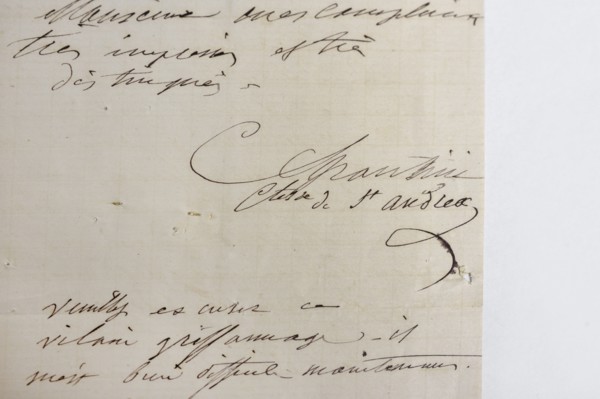 Monsieur mes compliments
très
distingués.
C Spontini
Ctesse de St Andrea
veuillez excuser ce
vilain griffonnage - il
m'est bien difficile maintenant.